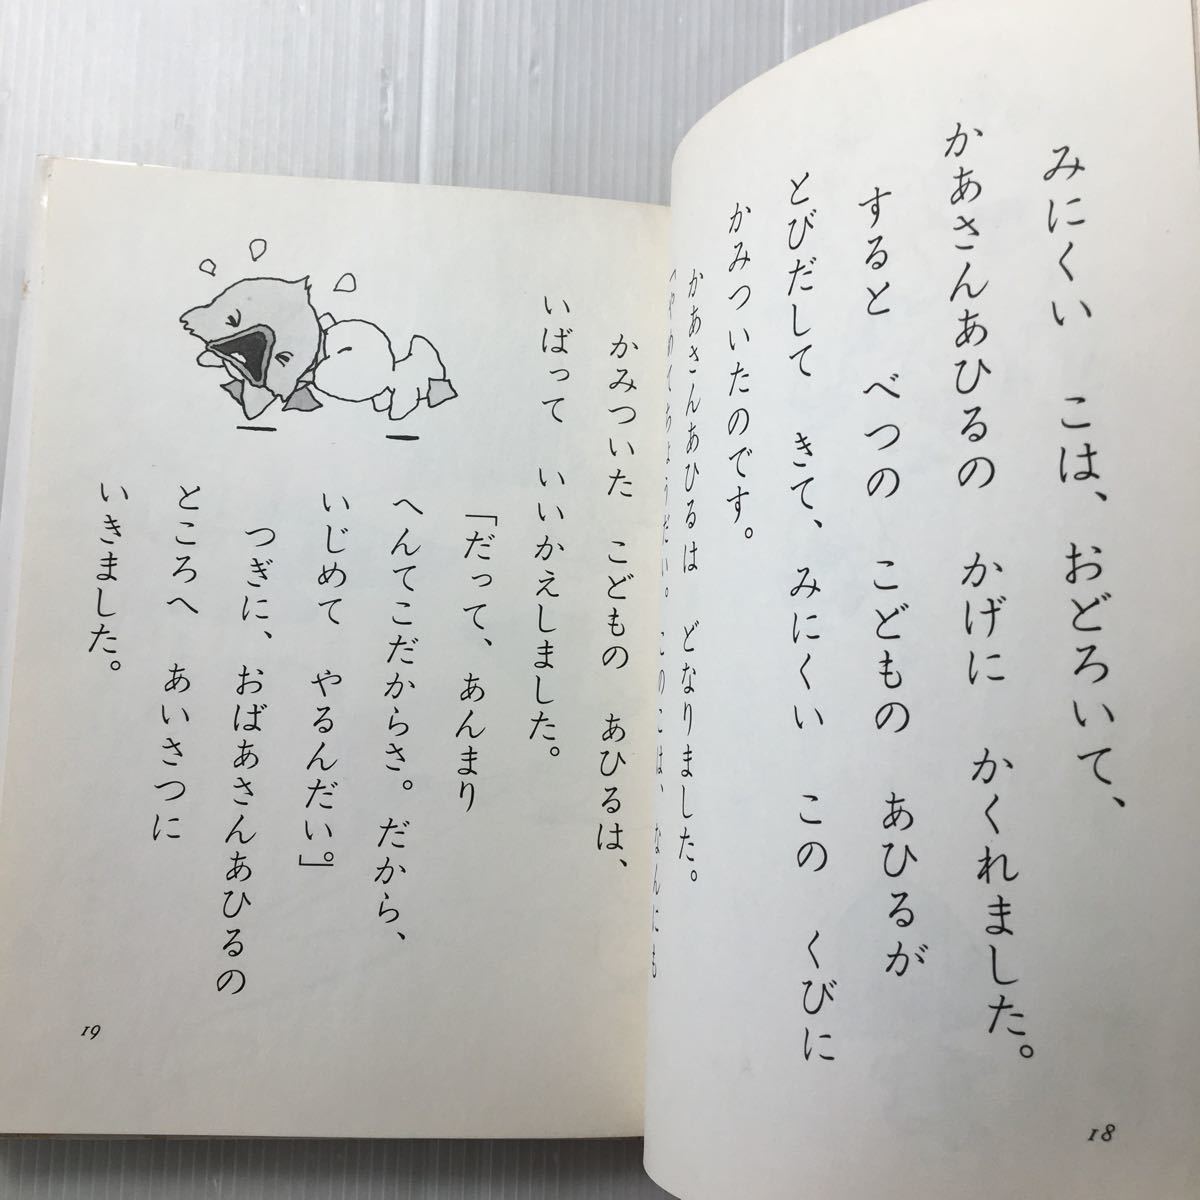 みにくい こは、おどろいて、
かあさんあひるの かげに かくれました。
すると べつの こどもの あひるが
とびだして きて、みにくい この くびに
かみついたのです。
かあさんあひるは どなりました。
「やめてちょうだい。このこは、なんにも
18
かみついた こどもの あひるは、
いばって いいかえしました。
「だって、あんまり
へんてこだからさ。だから、
いじめて やるんだい。」
つぎに、おばあさんあひるの
ところへ あいさつに
いきました。
19